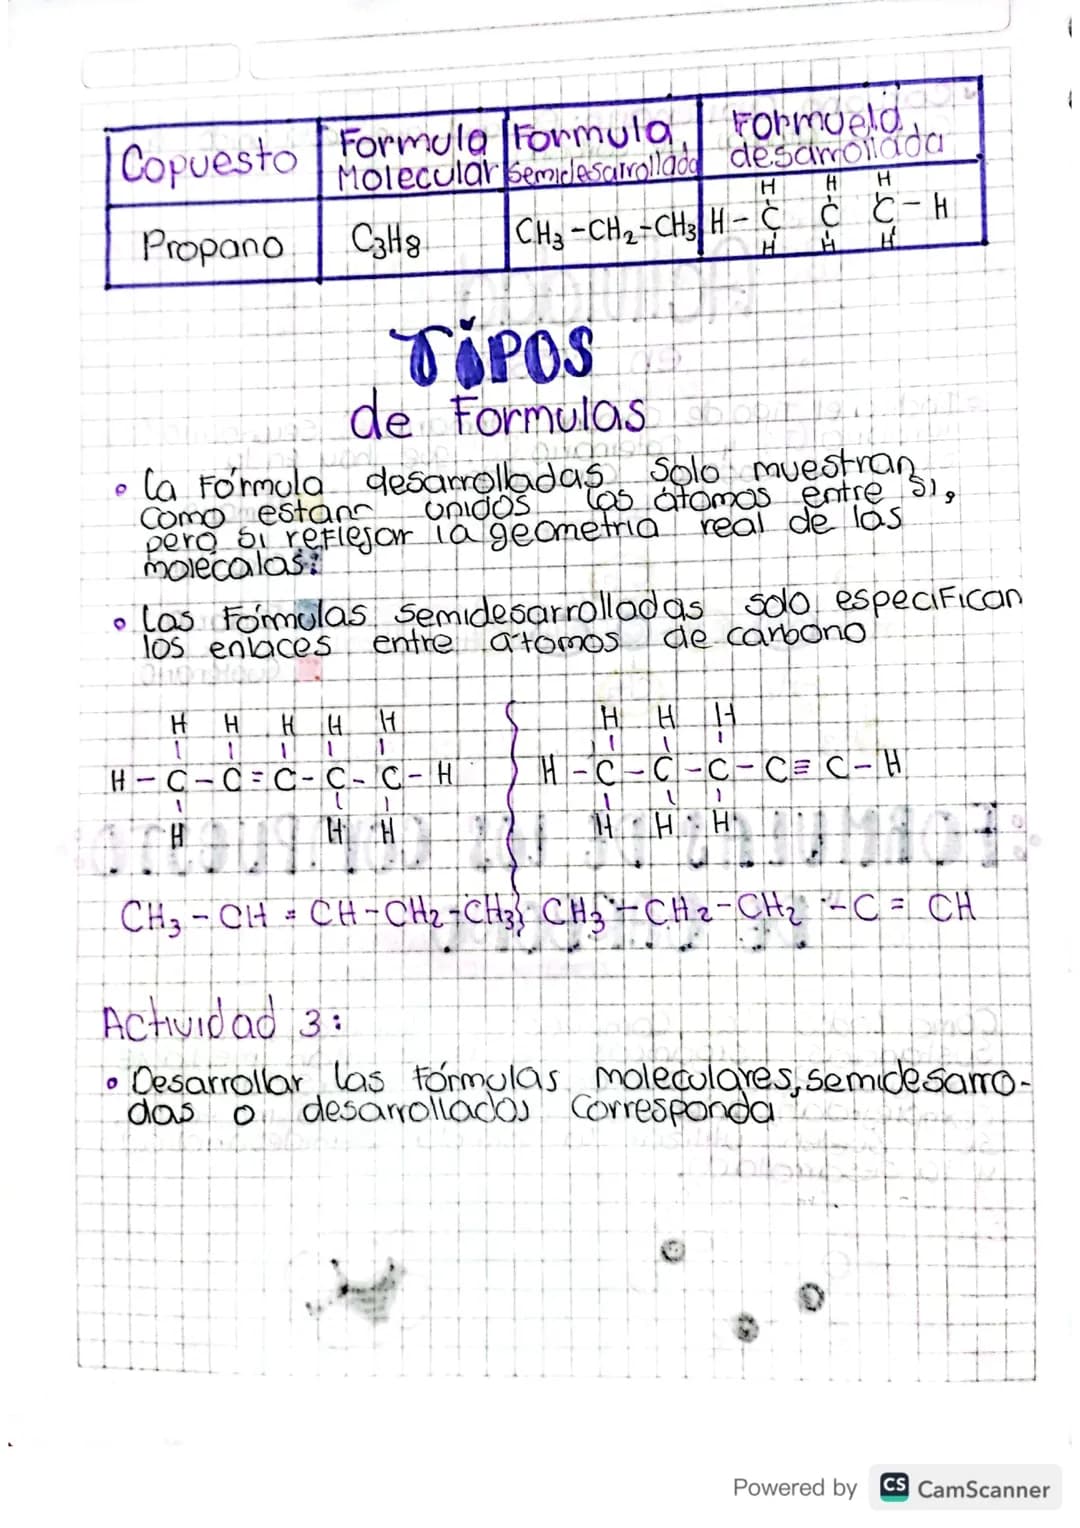 Copuesto Formula Molecular Formula Semidesarrollado Formuela desarrollada
Propano C3H8 CH3-CH2-CH3 H-C C C-H
H H H
H H H
TIPOS
de Formulas
• la Fórmula desarrolladas Solo muestran
como estan unidos los átomos entre si,
pero si reflejar la geometria real de las
molécalas:
• las Fórmulas semidesarrolladas solo especifican
los enlaces entre átomos de carbono
H H H H H
H-C-C=C-C-C-H
H H H
H H H
H-C-C-C-C≡C-H
H H H
CH3-CH=CH-CH2-CH3 CH3-CH2-CH2-C=CH
Actividad 3:
• Desarrollar las fórmulas moleculares, semidesarro-
das o desarrollados corresponda
Powered by CS CamScanner